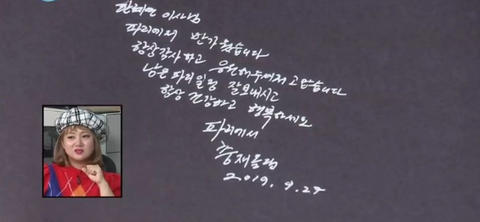 이사님
파리에서 반가웠습니다
항상 감사하고 응원해주셔서 고맙습니다
남은 파리일정 잘보내시고
항상 건강하고 행복하세요
파리에서
2019. 9. 27